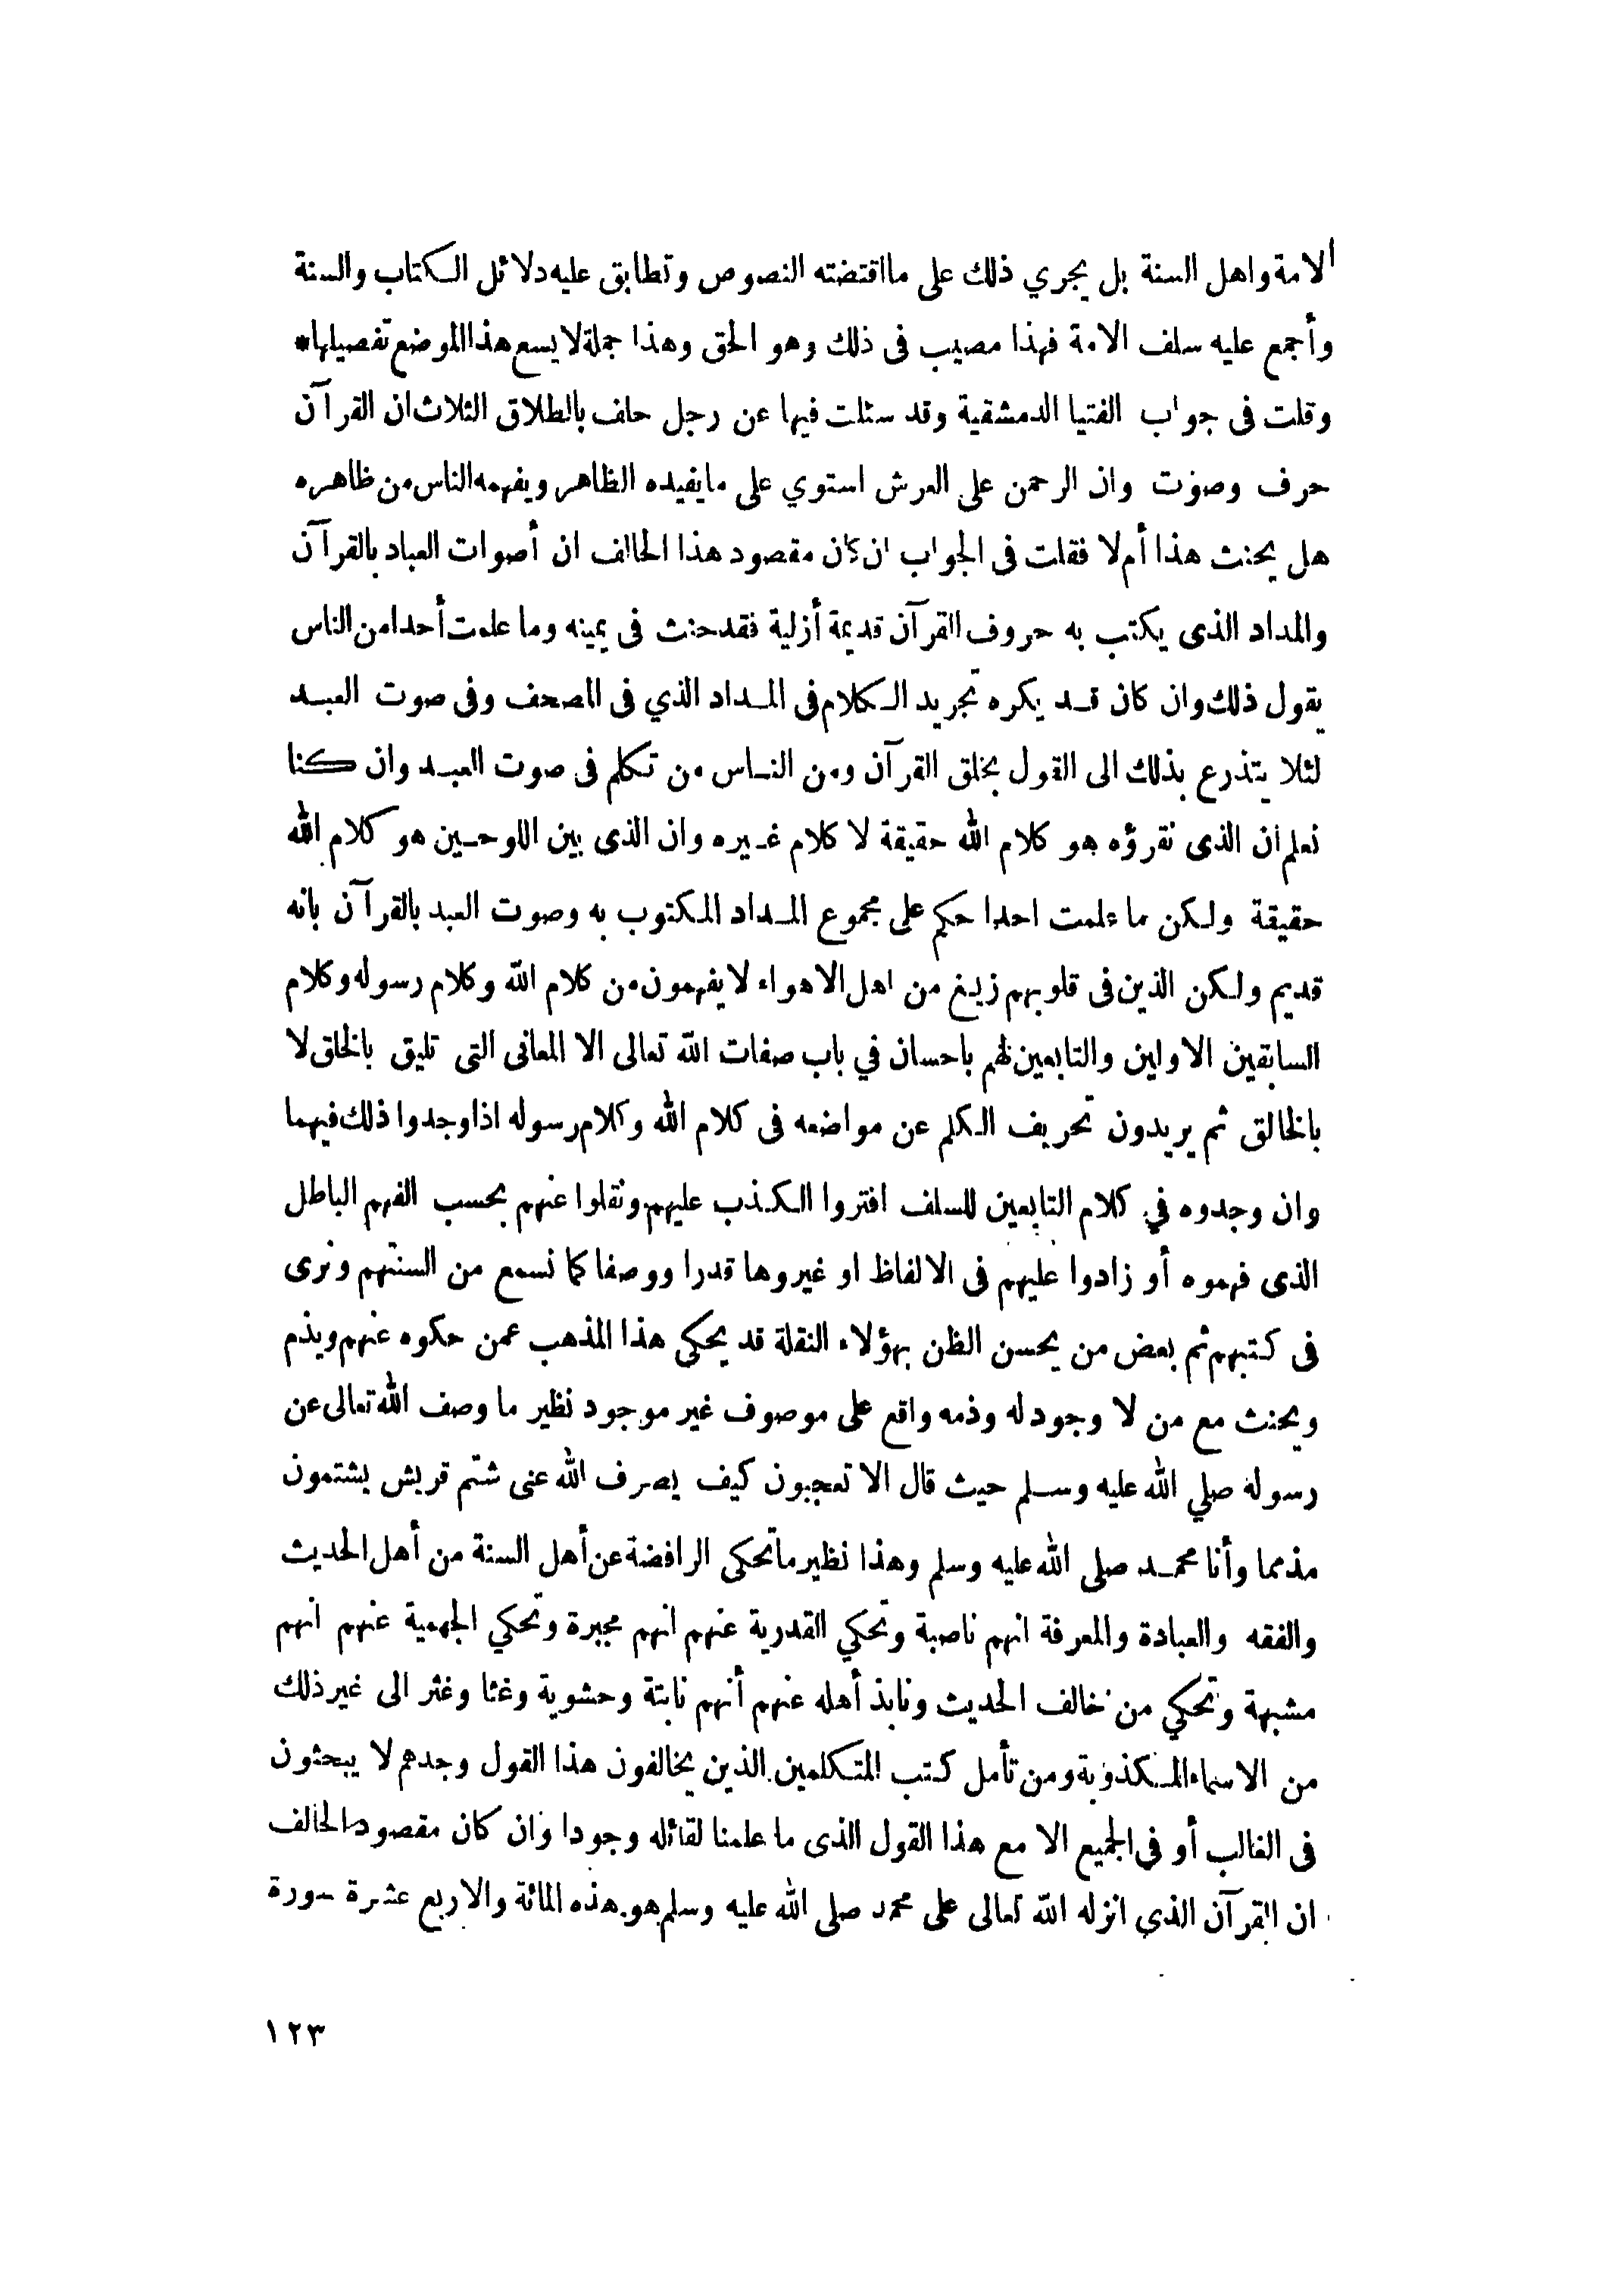 الامة واهل السنة بل يجري ذلك على ما اقتضته النصوص وتطابق عليه دلائل الكتاب والسنة
وأجمع عليه سلف الامة فهذا مصيب فى ذلك وهو الحق وهذا جملة لا يسع هذا الموضع تفصيلها*
وقلت فى جواب الفتيا الدمشقية وقد سئلت فيها عن رجل حلف بالطلاق الثلاث ان القرآن
حرف وصوت وان الرحمن على العرش استوي على ما يفيده الظاهر ويفهمه الناس من ظاهره
هل يحنث هذا أم لا فقلت فى الجواب ان كان مقصود هذا الحالف ان أصوات العباد بالقرآن
والمداد الذى يكتب به حروف القرآن قديمة أزلية فقد حنث فى يمينه وما علمت أحدا من الناس
يقول ذلك وان كان قد يكره تجريد الكلام فى المداد الذي فى المصحف وفى صوت العبد
لئلا يتذرع بذلك الى القول بخلق القرآن ومن الناس من تكلم فى صوت العبد وان كنا
نعلم ان الذى نقرؤه هو كلام الله حقيقة لا كلام غيره وان الذى بين اللوحين هو كلام الله
حقيقة ولكن ما علمت احدا حكم على مجموع المداد المكتوب به وصوت العبد بالقرآن بانه
قديم ولكن الذين فى قلوبهم زيغ من اهل الاهواء لا يفهمون من كلام الله وكلام رسوله وكلام
السابقين الاولين والتابعين لهم باحسان في باب صفات الله تعالى الا المعانى التى تليق بالخلق لا
بالخالق ثم يريدون تحريف الكلم عن مواضعه فى كلام الله وكلام رسوله اذا وجدوا ذلك فيهما
وان وجدوه في كلام التابعين للسلف افتروا الكذب عليهم ونقلوا عنهم بحسب الفهم الباطل
الذى فهموه أو زادوا عليهم فى الالفاظ او غيروها قدرا ووصفا كما نسمع من السنتهم ونرى
فى كتبهم ثم بعض من يحسن الظن بهؤلاء النقلة قد يحكى هذا المذهب عمن حكوه عنهم ويذم
ويحنث مع من لا وجود له وذمه واقع على موصوف غير موجود نظير ما وصف الله تعالى عن
رسوله صلي الله عليه وسلم حيث قال الا تعجبون كيف يصرف الله عنى شتم قريش يشتمون
مذمما وأنا محمد صلى الله عليه وسلم وهذا نظير ما تحكى الرافضة عن أهل السنة من أهل الحديث
والفقه والعبادة والمعرفة انهم ناصبة وتحكي القدرية عنهم انهم مجبرة وتحكي الجهمية عنهم انهم
مشبهة وتحكي من خالف الحديث ونابذ أهله عنهم أنهم نابتة وحشوية وغثا وغثر الى غير ذلك
من الاسماء المكذوبة ومن تأمل كتب المتكلمين الذين يخالفون هذا القول وجدهم لا يبحثون
فى الغالب أو فى الجميع الا مع هذا القول الذى ما علمنا لقائله وجودا وان كان مقصود الحالف
ان القرآن الذى انزله الله تعالى على محمد صلى الله عليه وسلم هو هذه المائة والاربع عشرة سورة
١٢٣